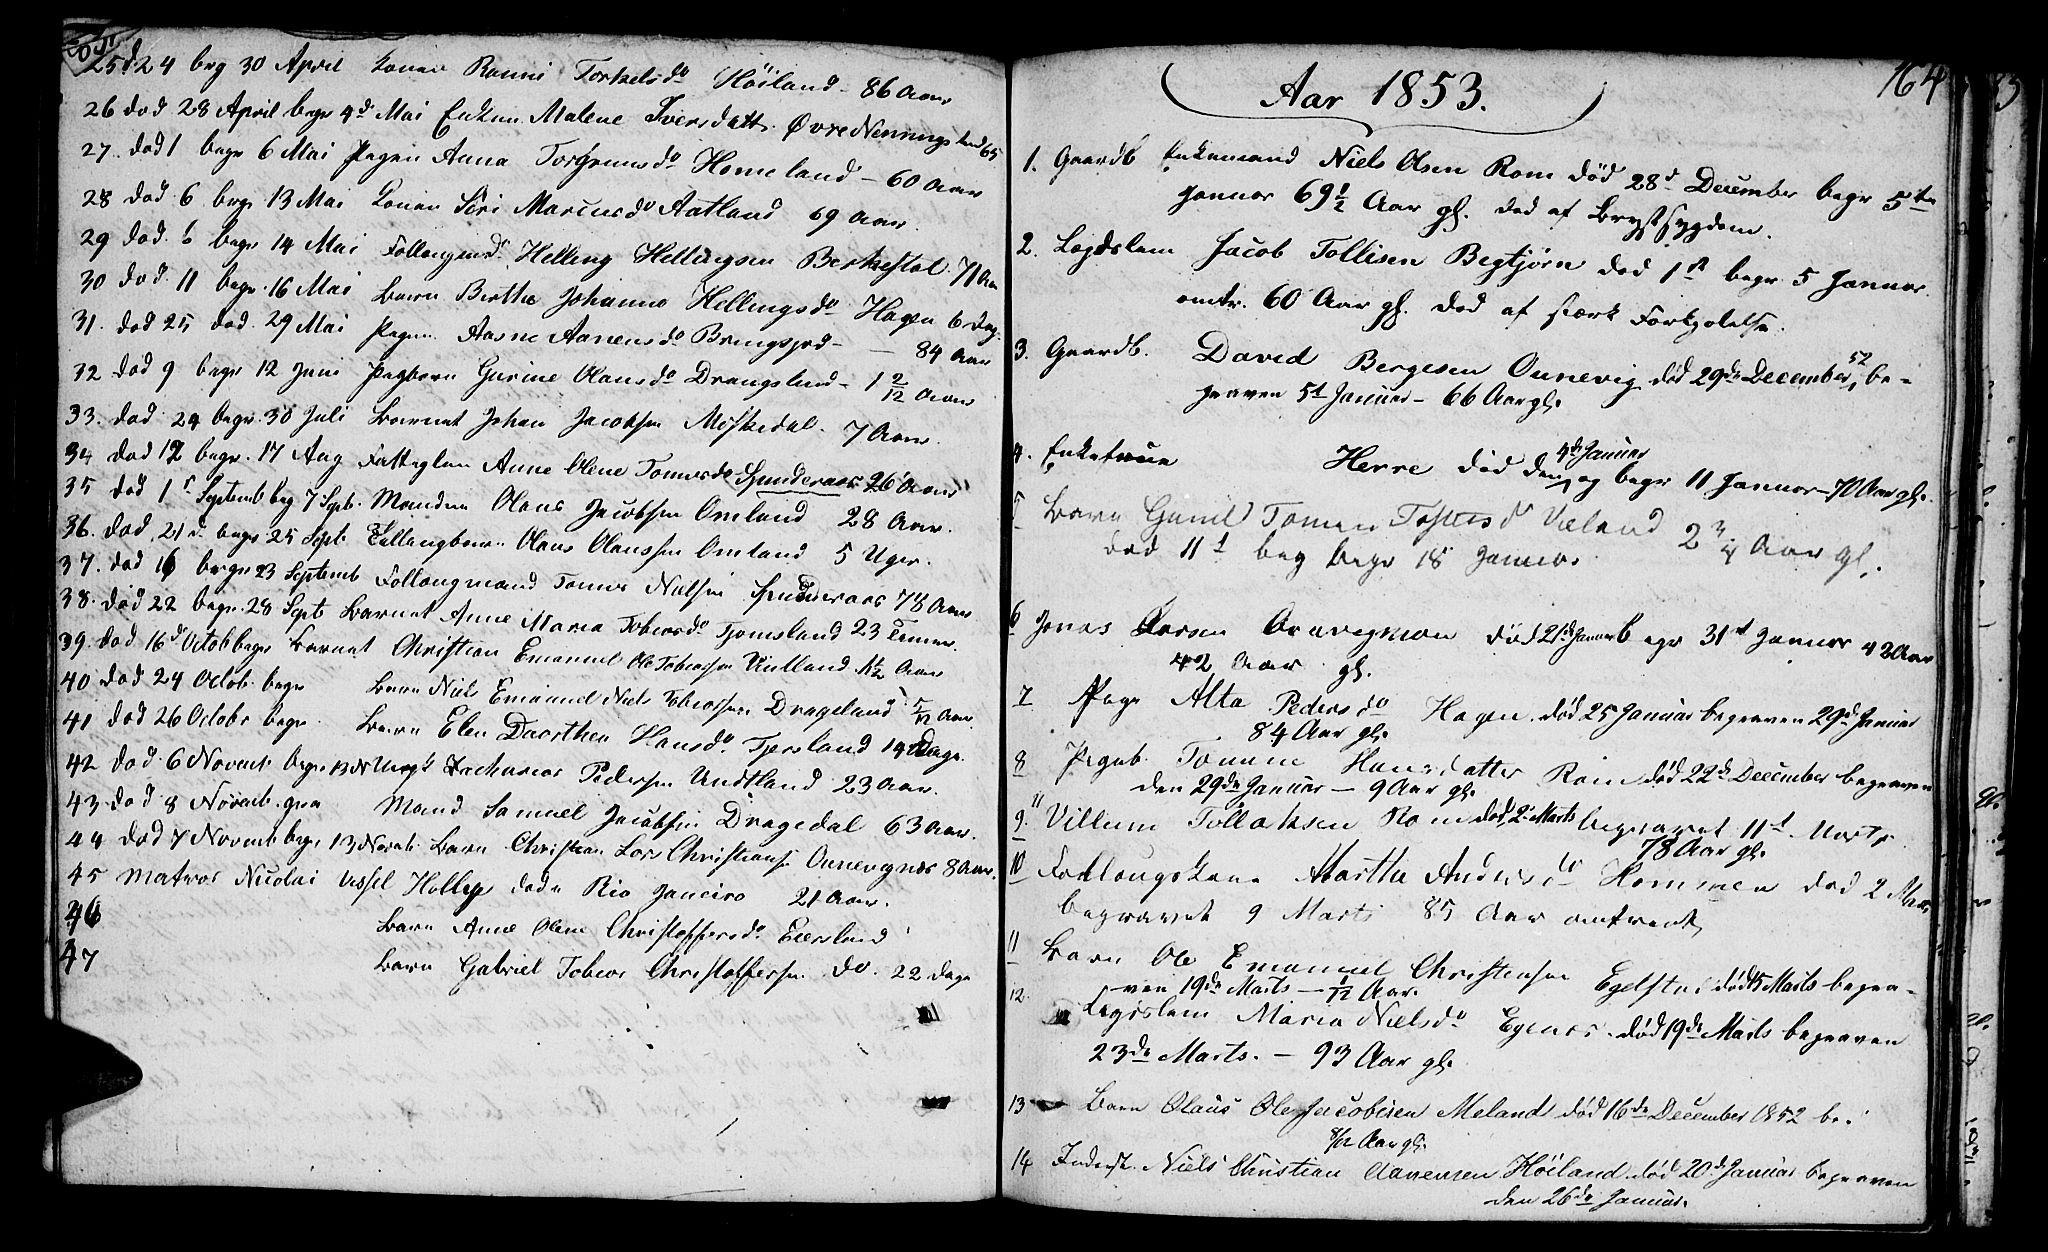 25 d 24 beg 30 April Konen Ronni Torkelsdr Höiland - 86 Aar
26 död 28 April begr 4de Mai Enken Malene Iversdatt. Øvre Nenningsland 65
27. död 1 begr 6 Mai Pigen Anna Torgrimsdr Homeland - 60 Aar
28 död 6 begr 13 Mai Konen Siri Marcusdr Aatland 69 Aar.
29 död 6 begr 14 Mai Follaugmd. Helling Hellingsen Birkestøl. 71 Aar
30 död 11 begr. 16 Mai Barn Berthe Johanne Hellingsdr Hagen 6 Dag.
31. död 25 död. 29 Mai Pigen Aasne Aanensdr Bringsjord - 84 Aar
32 död 9 begr 12 Juni Pigbarn Gurine Olausdr Drangsland - 1 2/12 Aar
33. död 24 begr. 30 Juli Barnet Johan Jacobsen Möskedal. 7 Aar.
34 död 12 begr. 17 Aug Fattiglem Anne Olene Tomesdr Spinderaas 26 Aar
35 död 1st Septemb beg 7 Sept. Manden Olaus Jacobsen Omland 28 Aar.
36. död 21 d. begr 25 Sept Tvillingbarn Olaus Olaussen Omland 5 Uger.
37. död 16 begr 23 Septemb Follaugmand Tomes Nielsen Spinderaas 78 Aar
38. död 22 begr. 28 Sept Barnet Anne Maria Tobiasdr Tjomsland 23 Timer.
39. död 16d Octob begr Barnet Christian Emanuel Ole Tobiassen Undland 1 1/2 Aar
40 död 24 Octob. begr Barn Niels Emanuel Niels Tobiassen Drageland 5/12 Aar
41 död 26 Octobr begr. Barn Elen Dorthea Hansdr Tjersland 14 Dage.
42 död 6 Novemb begr 13 N Ungk Zacharias Pedersen Undtland 23 Aar.
43. död 8 Novemb. Mand Samuel Jacobsen Dragedal 63 Aar.
44 död 7 Novemb begr 13 Novb. Barn Christian Lars Christians Ounevignes 8 Aar.
45 Matros Nicolai Vessel Hollen döde Rio Janeiro 21 Aar.
46 Barn Anne Olene Christoffersdr. Eiersland
47 Barn Gabriel Tobias Christoffersen do. 22 Dage
164
Aar 1853.
1. Gaardb Enkemand Niels Olsen Rom död 28d December begr 5te
Januar 69 1/2 Aar gl. död af Brystsygdom.
2. Lægdslem Jacob Tollisen Begtjörn död 1st begr 5 Januar.
omtr. 60 Aar gl. död af stærk Forkjølelse.
3. Gaardb. David Bergesen Ounevig död 29de December 52 be-
graven 5t Januar - 66 Aar gl.
4. Enkekone Herre död den 4de Januar og begr 11 Januar - 70 Aar gl.
5 Barn Gunil Tomine Tostensd Vieland 2 3/4 Aar gl.
död 11t beg begr 18 Januar.
6 Jonas Larsen Ounevigmoen död 21de Januar begr 31st Januar 42 Aar
42 Aar gl.
7 Pige Alta Pedersdr Hagen. död 25 Januar begraven 29d Januar
84 Aar gl.
8 Pigeb. Tomine Hansdatter Rom död 22de December begraven
den 29de Januar - 9 Aar gl.
9. Villum Tollaksen Rom död 2 Marts begravet 11t Marts
78 Aar gl.
10 Follaugskone Marthe Andersdr Hommen död 2 Marts
begravet 9 Marts 85 Aar omtrent
11 Barn Ole Emanuel Christensen Egelstad död 15 Marts begra-
ven 19de Marts - 1/12 Aar.
12. Legdslem Maria Nielsdr Egenes. död 19de Marts begraven
23de Marts. - 93 Aar gl.
13 Barn Olaus Ole Jacobsen Meland död 16de December 1852 be.
8/12 Aar gl.
14 Inderst. Niels Christian Aanensen Höiland död 20d Januar begraven
den 26de Januar.